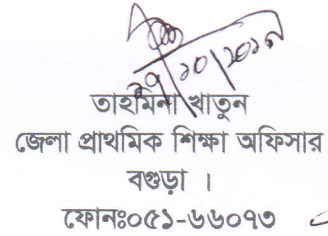 তাহমিনা খাতুন
জেলা প্রাথমিক শিক্ষা অফিসার
বগুড়া ।
ফোনঃ০৫১-৬৬০৭৩